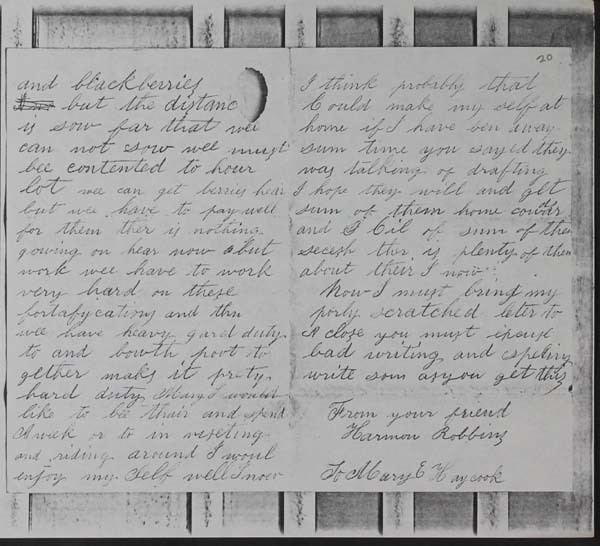 and blackberries
but the distanc
is sow far that wee
can not sow wee must
bee contented to hour
lot wee can get berries hear
but wee have to pay well
for them ther is nothing
gowing on hear now a but
work wee have to work
very hard on these
fortafycations and thn
wee have heavy gard duty
to and bowth poot to
gether makes it prety
hard duty Mary I would
like to bee thair and spend
A week or to in viseting
and riding around I woul
enjoy my Self well I now
20
I think probably that
I could make my self at
home if I have ben away
sum time you sayed they
was talking of drafting
I hope they will and get
sum of them home
and of sum of
secesh ther is plenty of then
about their I now
Now I must bring my
porly scratched leter to
A close you must excuse
bad writing and speling
write som as you get this
From your friend
Harmon Robbins
To Mary E Haycook